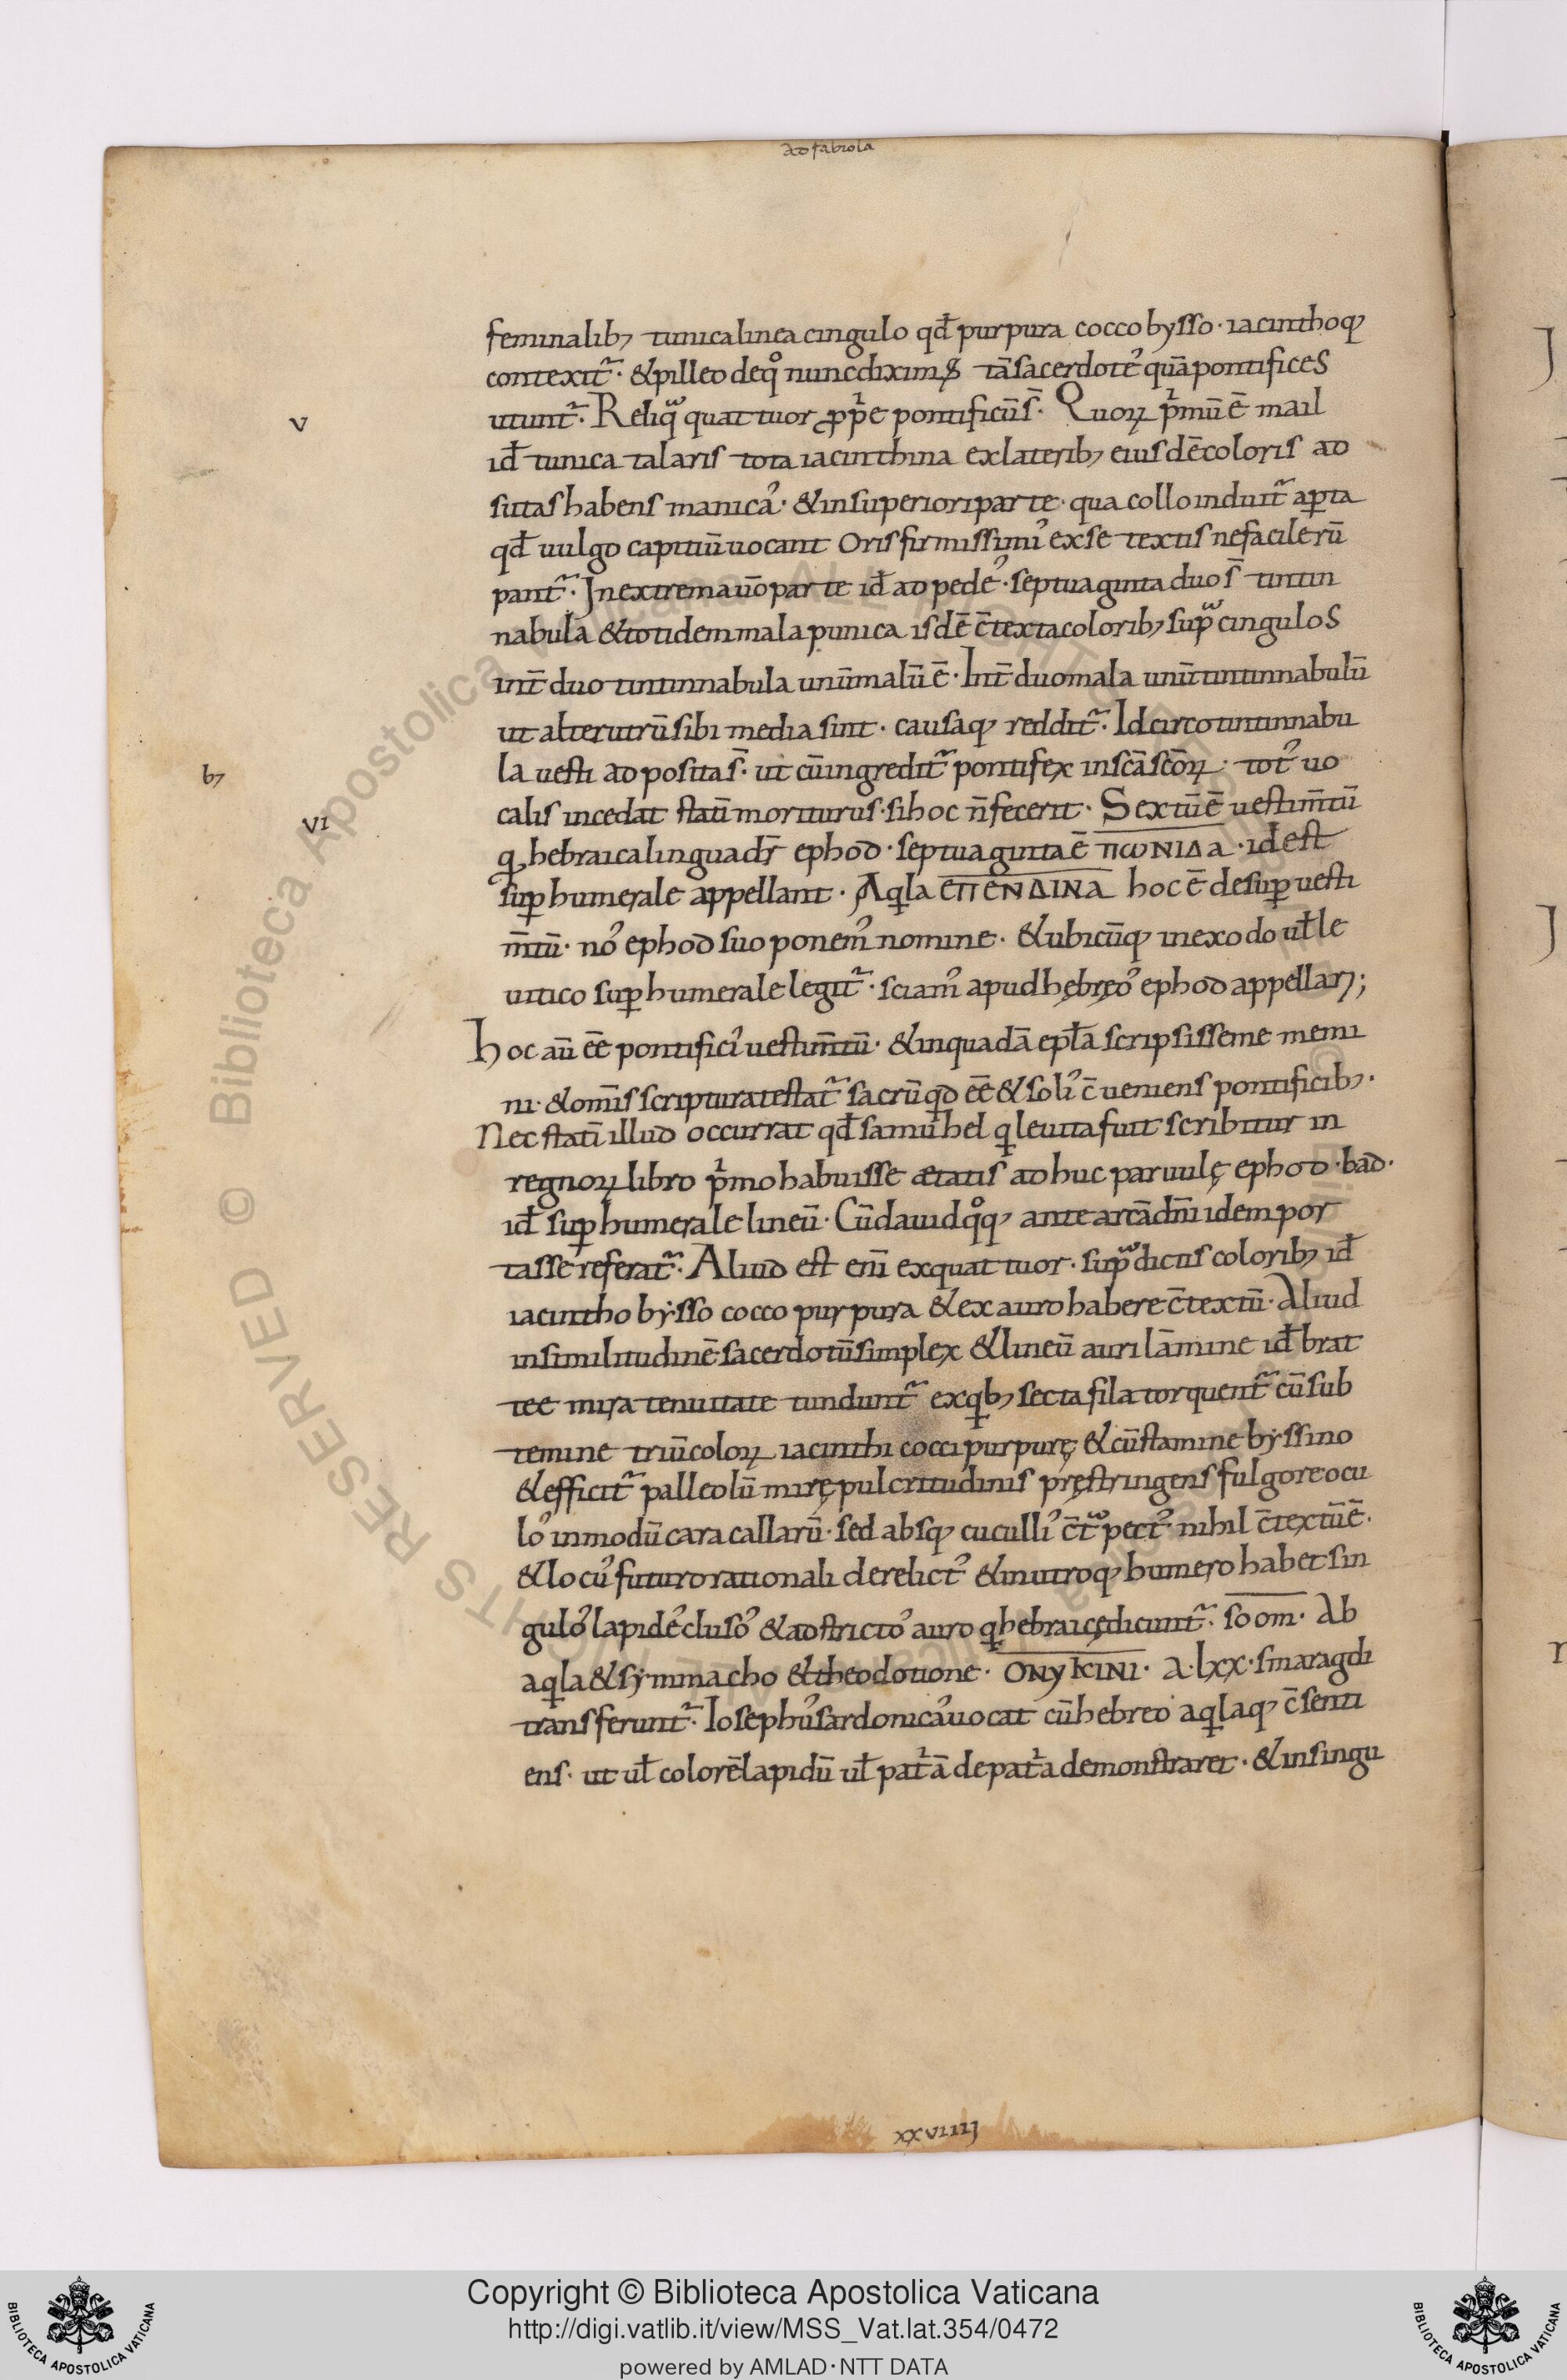 ad fabiola
feminalib; tunica linea cingulo qđ purpura cocco bysso · iacinthoq;
contexit᷑ · & pilleo de qͦ nunc dixim᷒ tā sacerdote᾽ quā pontifices
utunt᷑ · Reliqᷓ quattuor ꝓpͥe pontificū s̄ · Quoꝝ pͥmū ē mail
v
iđ tunica talaris tota iacinthina ex lateribꝫ eiusdē coloris ad
sutas habens manica᾽ · & in superiori parte · qua collo induit᷑ aꝑta
qđ uulgo capitiū uocant oris firmissimi᾽ ex se textis ne facile rū
pant᷑ · In extrema uo̅ parte iđ ad pede᾽ · septuaginta duo s̄ tintin
nabula & totidem mala punica isdē c̄texta coloribꝫ supᷓ cingulos
int̄ duo tintinnabula unū malū ē · Int̄ duo mala unū tintinnabulū
ut alterutrū sibi media sint · causaq; reddit᷑ · Idcirco tintinnabu
la uesti ad posita s̄ · ut cū ingredit᷑ pontifex in sc̄a sc̄oꝝ · tot᾽ uo
bꝫ
calis incedat statī moriturus · si hoc n̄ fecerit · Sextū ē uestim̄tū
vi
q; hebraica lingua dr̄ ephod · septuaginta ē πωΝΙΔα · id est
suꝑ humerale appellant · Aqͥla ЄΠЄΝΔΙΝα hoc ē desuꝑ uesti
m̄tū · no᾽ ephod suo ponem᾽ nomine · & ubicūq; in exodo uł le
uitico suꝑ humerale legit᷑ · sciam᾽ apud hębręo᾽ ephod appellari;
Hoc aū eē pontifici᾽ uestim̄tū · & in quadā epłā scripsisse me memi
ni · & om̄is scriptura testat᷑ sacrū qͥd eē & soli᾽ c̄ueniens pontificibꝫ ·
Nec statī illud occurrat qđ samuhel qͥ leuita fuit scribitur in
regnoꝝ libro pͥmo habuisse ætatis ad huc paruulę ephod · bad ·
iđ suꝑ humerale lineū · Cū dauid qͦq; ante arcā dn̄i idem por
tasse referat᷑ · Aliud est enī ex quattuor · supᷓdictis coloribꝫ iđ
iacintho bysso cocco purpura & ex auro habere c̄textū · Aliud
in similitudinē sacerdotū simplex & lineū auri lāmine iđ brat
tee mira tenuitate tundunt᷑ ex qͥbꝫ secta fila torquent᷑ cū sub
temine triū coloꝝ iacinthi cocci purpurę & cū stamine byssino
& efficit᷑ palleolū mirę pulcritudinis pręstringens fulgore ocu
lo᾽ in modū caracallarū · sed absq; cuculli᾽ c̄tᷓ pect᾽ · nihil c̄textū ē ·
& locu᾽ futuro rationali derelict᾽ & in utroq; humero habet sin
gulo᾽ lapide᾽ cluso᾽ & adstricto᾽ auro qͥ hebraicę dicunt᷑ · soom · Ab
aqͥla & symmacho & theodotione · ONyKINI · a · lxx · smaragdi
transferunt᷑ · Iosephu᾽ sardonica᾽ uocat cū hebreo aqͥlaq; c̄senti
ens · ut uł colorē lapidū uł patͥā de patͥa demonstraret · & in singu
xxviiij
Copyright © Biblioteca Apostolica Vaticana
http://digi.vatlib.it/view/MSS_Vat.lat.354/0472
powered by AMLAD·NTT DATA